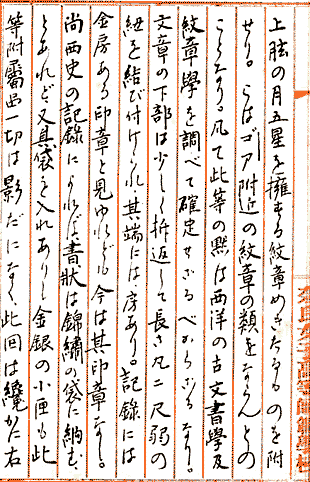 上肱の月五星を擁する紋章めきたるものを附
せり。こはゴア附近の紋章の類をならんとの
ことなり。凡て此等の點は西洋の古文書學及
紋章學を調べて確定せざるべからざるなり。
文章の下部は少しく折返して長さ凡二尺弱の
紐を結び付けられ其端には房あり。記録には
金房ある印章と見ゆれども今は其印章なし。
尚西史の記錄によれば書狀は錦繡の袋に納む
とあれど又其袋を入れありし金銀の小匣も此
等附屬品一切は影だになく此回は纔かに右
奈良女子高等師範學校